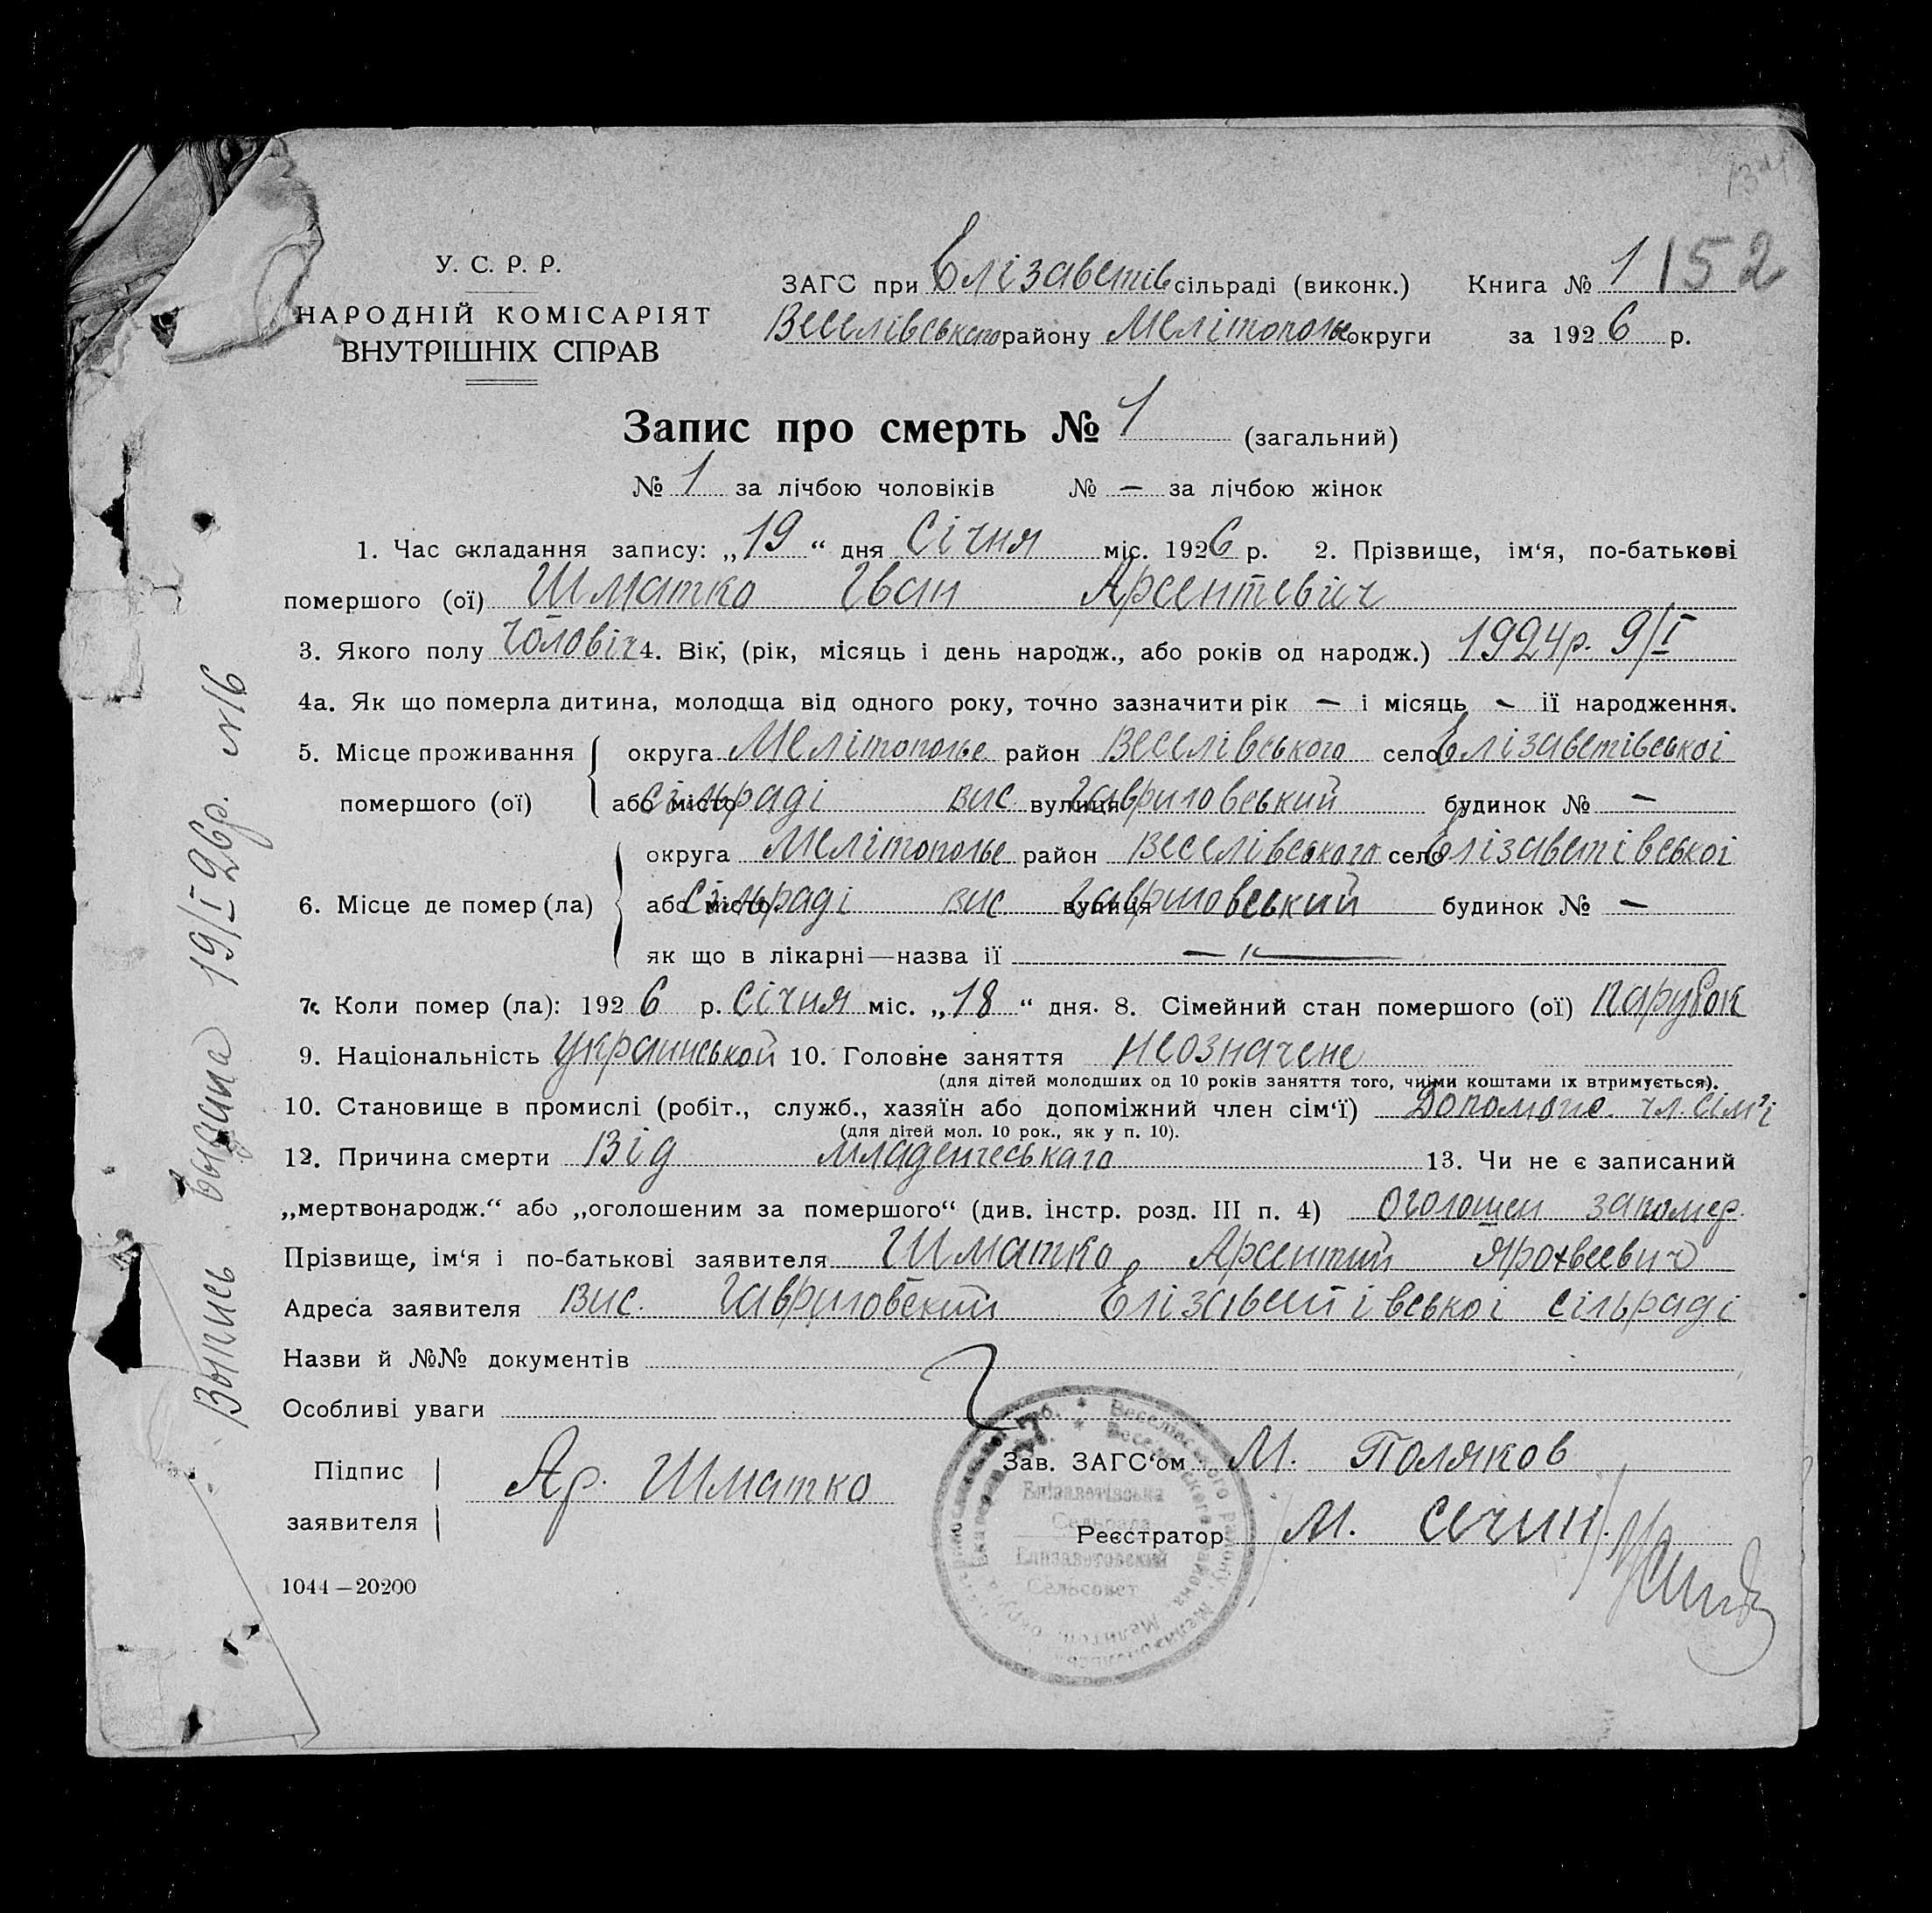 152
У. С. Р. Р.
НАРОДНІЙ КОМІСАРІЯТ
ВНУТРІШНІХ СПРАВ
ЗАГС при Єлізаветів сільраді (виконк.) Книга № 1
Веселівського району Мелітополье округи за 1926 р.
Запис про смерть № 1 (загальний)
№ 1 за лічбою чоловіків № — за лічбою жінок
1. Час складання запису: „19“ дня Січня міс. 1926 р. 2. Прізвище, ім‘я, по-батькові
помершого (ої) Шматко Іван Арсентевич
3. Якого полу чоловіч 4. Вік, (рік, місяць і день народж., або років од народж.) 1924р. 9/I
4а. Як що померла дитина, молодща від одного року, точно зазначити рік — і місяць - її народження.
5. Місце проживання округа Мелітополье район Веселівського село Єлізаветівськоі
помершого (ої) або місто сільраді вис вулиця Гавриловський будинок № —
округа Мелітополье район Веселівського село Єлізаветівськоі
6. Місце де помер (ла) або місто сільраді вис. вулиця Гавриловський будинок № —
як що в лікарні—назва її — „ —
7. Коли помер (ла): 1926 р. Січня міс. „18“ дня. 8. Сімейний стан помершого (ої) парубок
9. Національність Украинськой 10. Головне заняття неозначене
(для дітей молодших од 10 років заняття того, чиїми коштами їх втримується).
10. Становище в промислі (робіт., служб., хазяїн або допоміжний член сім‘ї) Допомого. чл. сім'і
(для дітей мол. 10 рок., як у п. 10).
12. Причина смерти Від младенческаго 13. Чи не є записаний
„мертвонародж.“ або „оголошеним за помершого“ (див. інстр. розд. III п. 4) оголошен запомер.
Прізвище, ім‘я і по-батькові заявителя Шматко Арсентий
Адреса заявителя Вис. Гавриловский Єлізаветівськоі сільраді
Назви й №№ документів
Особливі уваги
Підпис
заявителя Ар. Шматко
Зав. ЗАГС‘ом М. Поляков
Реєстратор М. Сечин.
1044—20200
Выпись выдана 19/I 26р. №16
Веселівського Району, Мелітопольськ
Елізаветівська
Сельрада
Елизаветовский
Сельсовет